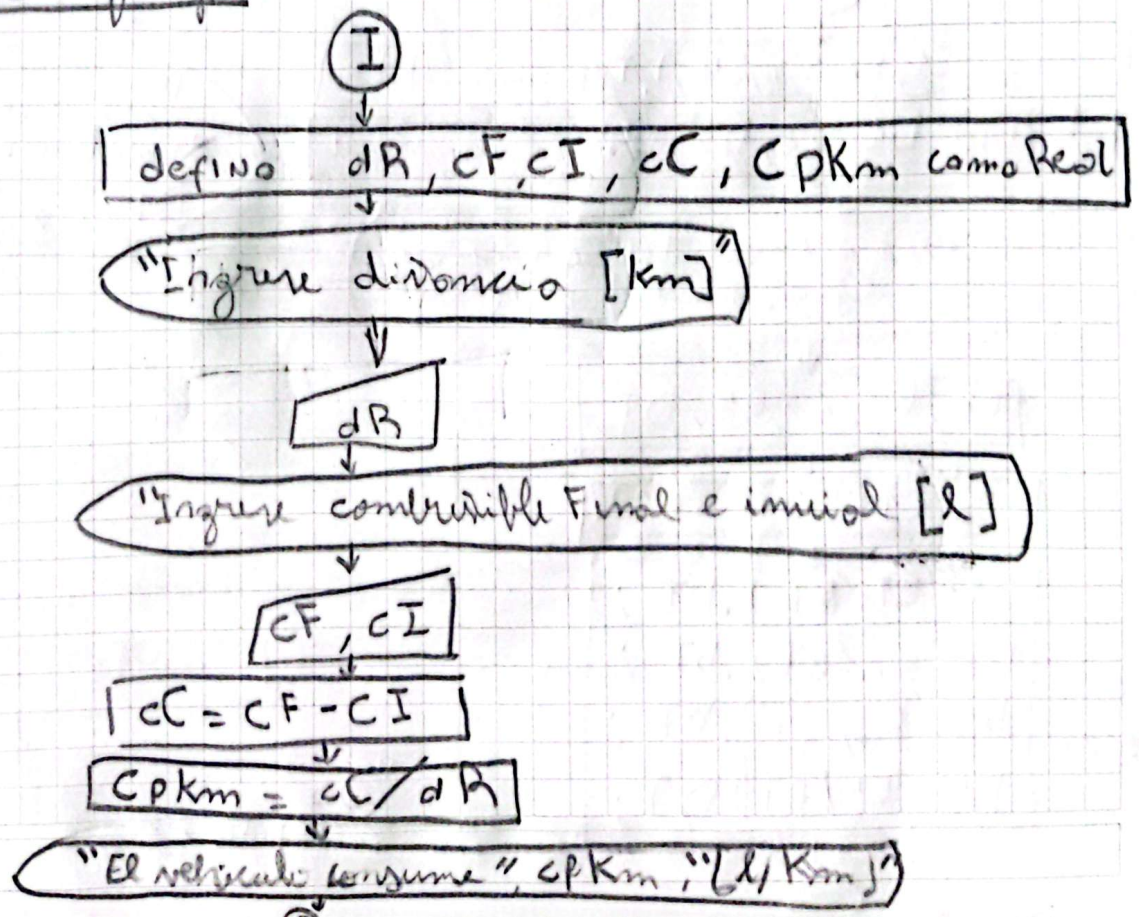 I
defino dR, cF, cI, cC, CpKm como Real
"Ingrese distancia [Km]"
dR
"Ingrese combustible Final e inicial [l]
cF, cI
cC = cF - CI
CpKm = cC/dR
"El vehiculo consume", cpKm, "[l/Km]"